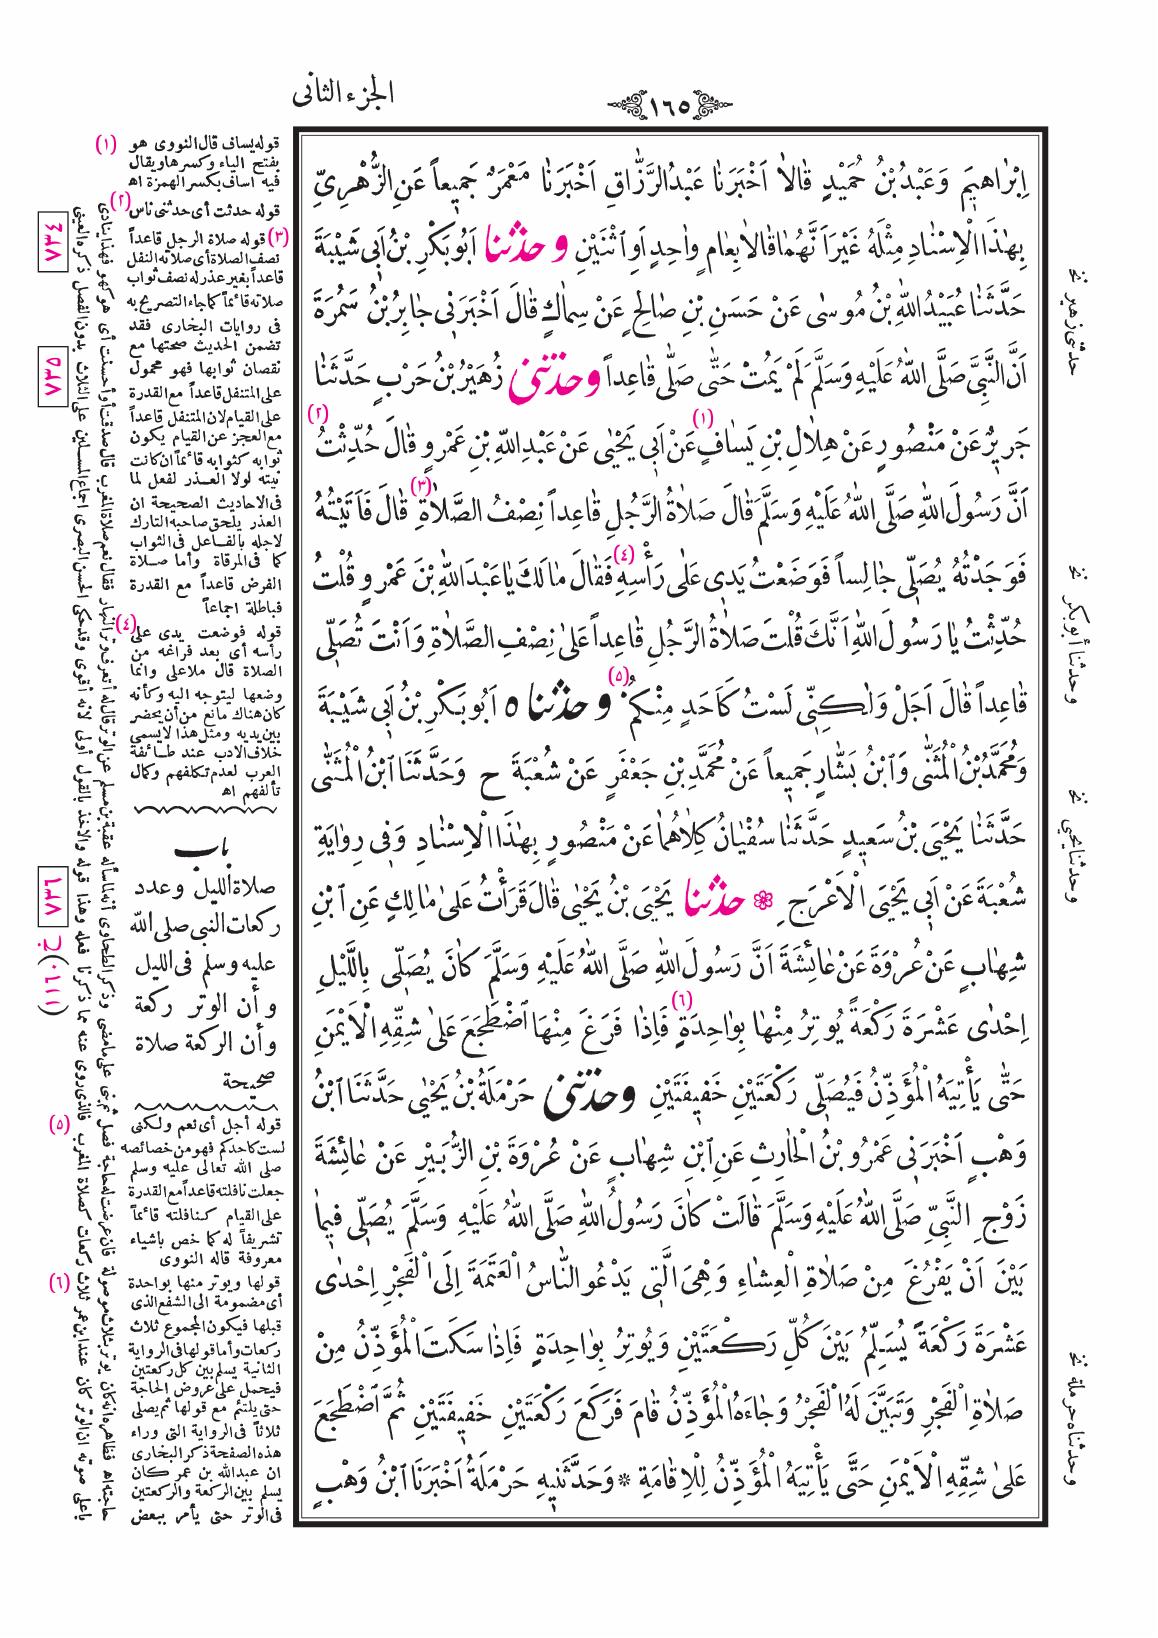 ١٦٥
الجزء الثانى
اِبْرَاهِيمَ وَعَبْدُ بْنُ حُمَيْدٍ قَالَا اَخْبَرَنَا عَبْدُالرَّزَّاقِ اَخْبَرَنَا مَعْمَرٌ جَمِيعاً عَنِ الزُّهْرِيِّ
بِهٰذَا الْاِسْنَادِ مِثْلَهُ غَيْرَ اَنَّهُمَا قَالَا بِعَامٍ وَاحِدٍ اَوِ اثْنَيْنِ وحدثنا اَبُو بَكْرِ بْنُ اَبِي شَيْبَةَ
حَدَّثَنَا عُبَيْدُ اللهِ بْنُ مُوسٰى عَنْ حَسَنِ بْنِ صَالِحٍ عَنْ سِمَاكٍ قَالَ اَخْبَرَنِي جَابِرُ بْنُ سَمُرَةَ
اَنَّ النَّبِيَّ صَلَّى اللهُ عَلَيْهِ وَسَلَّمَ لَمْ يَمُتْ حَتّٰى صَلّٰى قَاعِداً وحدثنى زُهَيْرُ بْنُ حَرْبٍ حَدَّثَنَا
جَرِيرٌ عَنْ مَنْصُورٍ عَنْ هِلَالِ بْنِ يَسَافٍ (١) عَنْ اَبِي يَحْيٰى عَنْ عَبْدِ اللهِ بْنِ عَمْرٍو قَالَ حُدِّثْتُ (٢)
اَنَّ رَسُولَ اللهِ صَلَّى اللهُ عَلَيْهِ وَسَلَّمَ قَالَ صَلَاةُ الرَّجُلِ قَاعِداً نِصْفُ الصَّلَاةِ (٣) قَالَ فَاَتَيْتُهُ
فَوَجَدْتُهُ يُصَلِّي جَالِساً فَوَضَعْتُ يَدِى عَلٰى رَأْسِهِ (٤) فَقَالَ مَالَكَ يَا عَبْدَ اللهِ بْنَ عَمْرٍو قُلْتُ
حُدِّثْتُ يَا رَسُولَ اللهِ اَنَّكَ قُلْتَ صَلَاةُ الرَّجُلِ قَاعِداً عَلٰى نِصْفِ الصَّلَاةِ وَاَنْتَ تُصَلِّي
قَاعِداً قَالَ اَجَلْ وَلٰكِنِّي لَسْتُ كَاَحَدٍ مِنْكُمْ (٥) وحدثنا ه اَبُو بَكْرِ بْنُ اَبِي شَيْبَةَ
وَمُحَمَّدُ بْنُ الْمُثَنّٰى وَابْنُ بَشَّارٍ جَمِيعاً عَنْ مُحَمَّدِ بْنِ جَعْفَرٍ عَنْ شُعْبَةَ ح وَحَدَّثَنَا ابْنُ الْمُثَنّٰى
حَدَّثَنَا يَحْيَى بْنُ سَعِيدٍ حَدَّثَنَا سُفْيَانُ كِلَاهُمَا عَنْ مَنْصُورٍ بِهٰذَا الْاِسْنَادِ وَفِي رِوَايَةِ
شُعْبَةَ عَنْ اَبِي يَحْيَى الْاَعْرَجِ حدثنا يَحْيَى بْنُ يَحْيٰى قَالَ قَرَأْتُ عَلٰى مَالِكٍ عَنِ ابْنِ
شِهَابٍ عَنْ عُرْوَةَ عَنْ عَائِشَةَ اَنَّ رَسُولَ اللهِ صَلَّى اللهُ عَلَيْهِ وَسَلَّمَ كَانَ يُصَلِّي بِاللَّيْلِ
اِحْدٰى عَشْرَةَ رَكْعَةً يُوتِرُ مِنْهَا بِوَاحِدَةٍ (٦) فَاِذَا فَرَغَ مِنْهَا اضْطَجَعَ عَلٰى شِقِّهِ الْاَيْمَنِ
حَتّٰى يَأْتِيَهُ الْمُؤَذِّنُ فَيُصَلِّي رَكْعَتَيْنِ خَفِيفَتَيْنِ وحدثنى حَرْمَلَةُ بْنُ يَحْيٰى حَدَّثَنَا ابْنُ
وَهْبٍ اَخْبَرَنِي عَمْرُو بْنُ الْحَارِثِ عَنِ ابْنِ شِهَابٍ عَنْ عُرْوَةَ بْنِ الزُّبَيْرِ عَنْ عَائِشَةَ
زَوْجِ النَّبِيِّ صَلَّى اللهُ عَلَيْهِ وَسَلَّمَ قَالَتْ كَانَ رَسُولُ اللهِ صَلَّى اللهُ عَلَيْهِ وَسَلَّمَ يُصَلِّي فِيمَا
بَيْنَ اَنْ يَفْرُغَ مِنْ صَلَاةِ الْعِشَاءِ وَهِيَ الَّتِي يَدْعُو النَّاسُ الْعَتَمَةَ اِلَى الْفَجْرِ اِحْدٰى
عَشْرَةَ رَكْعَةً يُسَلِّمُ بَيْنَ كُلِّ رَكْعَتَيْنِ وَيُوتِرُ بِوَاحِدَةٍ فَاِذَا سَكَتَ الْمُؤَذِّنُ مِنْ
صَلَاةِ الْفَجْرِ وَتَبَيَّنَ لَهُ الْفَجْرُ وَجَاءَهُ الْمُؤَذِّنُ قَامَ فَرَكَعَ رَكْعَتَيْنِ خَفِيفَتَيْنِ ثُمَّ اضْطَجَعَ
عَلٰى شِقِّهِ الْاَيْمَنِ حَتّٰى يَأْتِيَهُ الْمُؤَذِّنُ لِلْاِقَامَةِ * وَحَدَّثَنِيهِ حَرْمَلَةُ اَخْبَرَنَا ابْنُ وَهْبٍ
حدثنى زهير نخ
وحدثنا أبو بكر نخ
وحدثنا يحيى نخ
وحدثناه حرملة نخ
(١) قوله يساف قال النووى هو
بفتح الياء وكسرها ويقال
فيه اساف بكسر الهمزة اه
(٢) قوله حدثت أى حدثنى ناس
(٣) قوله صلاة الرجل قاعداً
نصف الصلاة أى صلاته النفل
قاعداً بغير عذر له نصف ثواب
صلاته قائماً كما جاء التصريح به
فى روايات البخارى فقد
تضمن الحديث صحتها مع
نقصان ثوابها فهو محمول
على المتنفل قاعداً مع القدرة
على القيام لان المتنفل قاعداً
مع العجز عن القيام يكون
ثوابه كثوابه قائماً ان كانت
نيته لولا العذر لفعل لما
فى الاحاديث الصحيحة ان
العذر يلحق صاحبه التارك
لاجله بالفاعل فى الثواب
كما فى المرقاة وأما صلاة
الفرض قاعداً مع القدرة
فباطلة اجماعاً
(٤) قوله فوضعت يدى على
رأسه أى بعد فراغه من
الصلاة قال ملاعلى وانما
وضعها ليتوجه اليه وكأنه
كان هناك مانع من أن يحضر
بين يديه ومثل هذا لايسمى
خلاف الادب عند طائفة
العرب لعدم تكلفهم وكمال
تألفهم اه
باب
صلاة الليل وعدد
ركعات النبى صلى الله
عليه وسلم فى الليل
وأن الوتر ركعة
وأن الركعة صلاة
صحيحة
(٥) قوله أجل أى نعم ولكنى
لست كاحدكم فهو من خصائصه
صلى الله تعالى عليه وسلم
جعلت نافلته قاعداً مع القدرة
على القيام كنافلته قائماً
تشريفاً له كما خص باشياء
معروفة قاله النووى
(٦) قولها ويوتر منها بواحدة
أى مضمومة الى الشفع الذى
قبلها فيكون المجموع ثلاث
ركعات وأما قولها فى الرواية
الثانية يسلم بين كل ركعتين
فيحمل على عروض الحاجة
حتى يلتئم مع قولها ثم يصلى
ثلاثاً فى الرواية التى وراء
هذه الصفحة ذكر البخارى
ان عبدالله بن عمر كان
يسلم بين الركعة والركعتين
فى الوتر حتى يأمر ببعض
٧٣٤
٧٣٥
٧٣٦